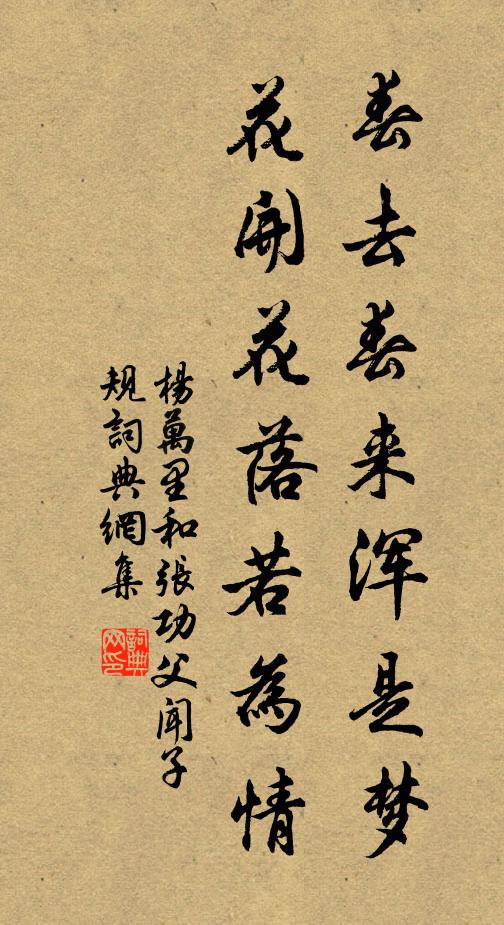 春去春来浑是梦
花開花落若為情
楊萬里和張功父聞子
規詞典網集
詞典
网印